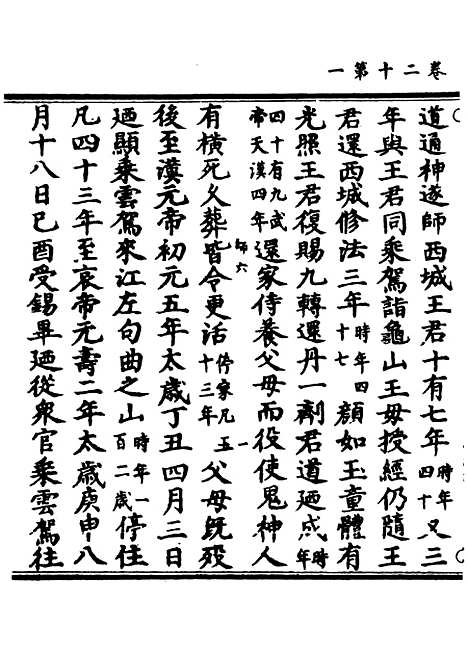 卷二十第一
道通神遂師西城王君十有七年時年四十又三
年與王君同乘駕詣龜山王母授經仍隨王
君還西城修法三年時年四十七顏如玉童體有
光照王君復賜九轉還丹一劑君道迺成時年
四十有九武帝天漢四年還家侍養父母而役使鬼神人
師六一
有橫死久葬皆令更活停家凡五十三年父母既歿
後至漢元帝初元五年太歲丁丑四月三日
迺顯乘雲駕來江左句曲之山時年一百二歲停住
凡四十三年至哀帝元壽二年太歲庚申八
月十八日己酉受錫畢迺從衆官乘雲駕往